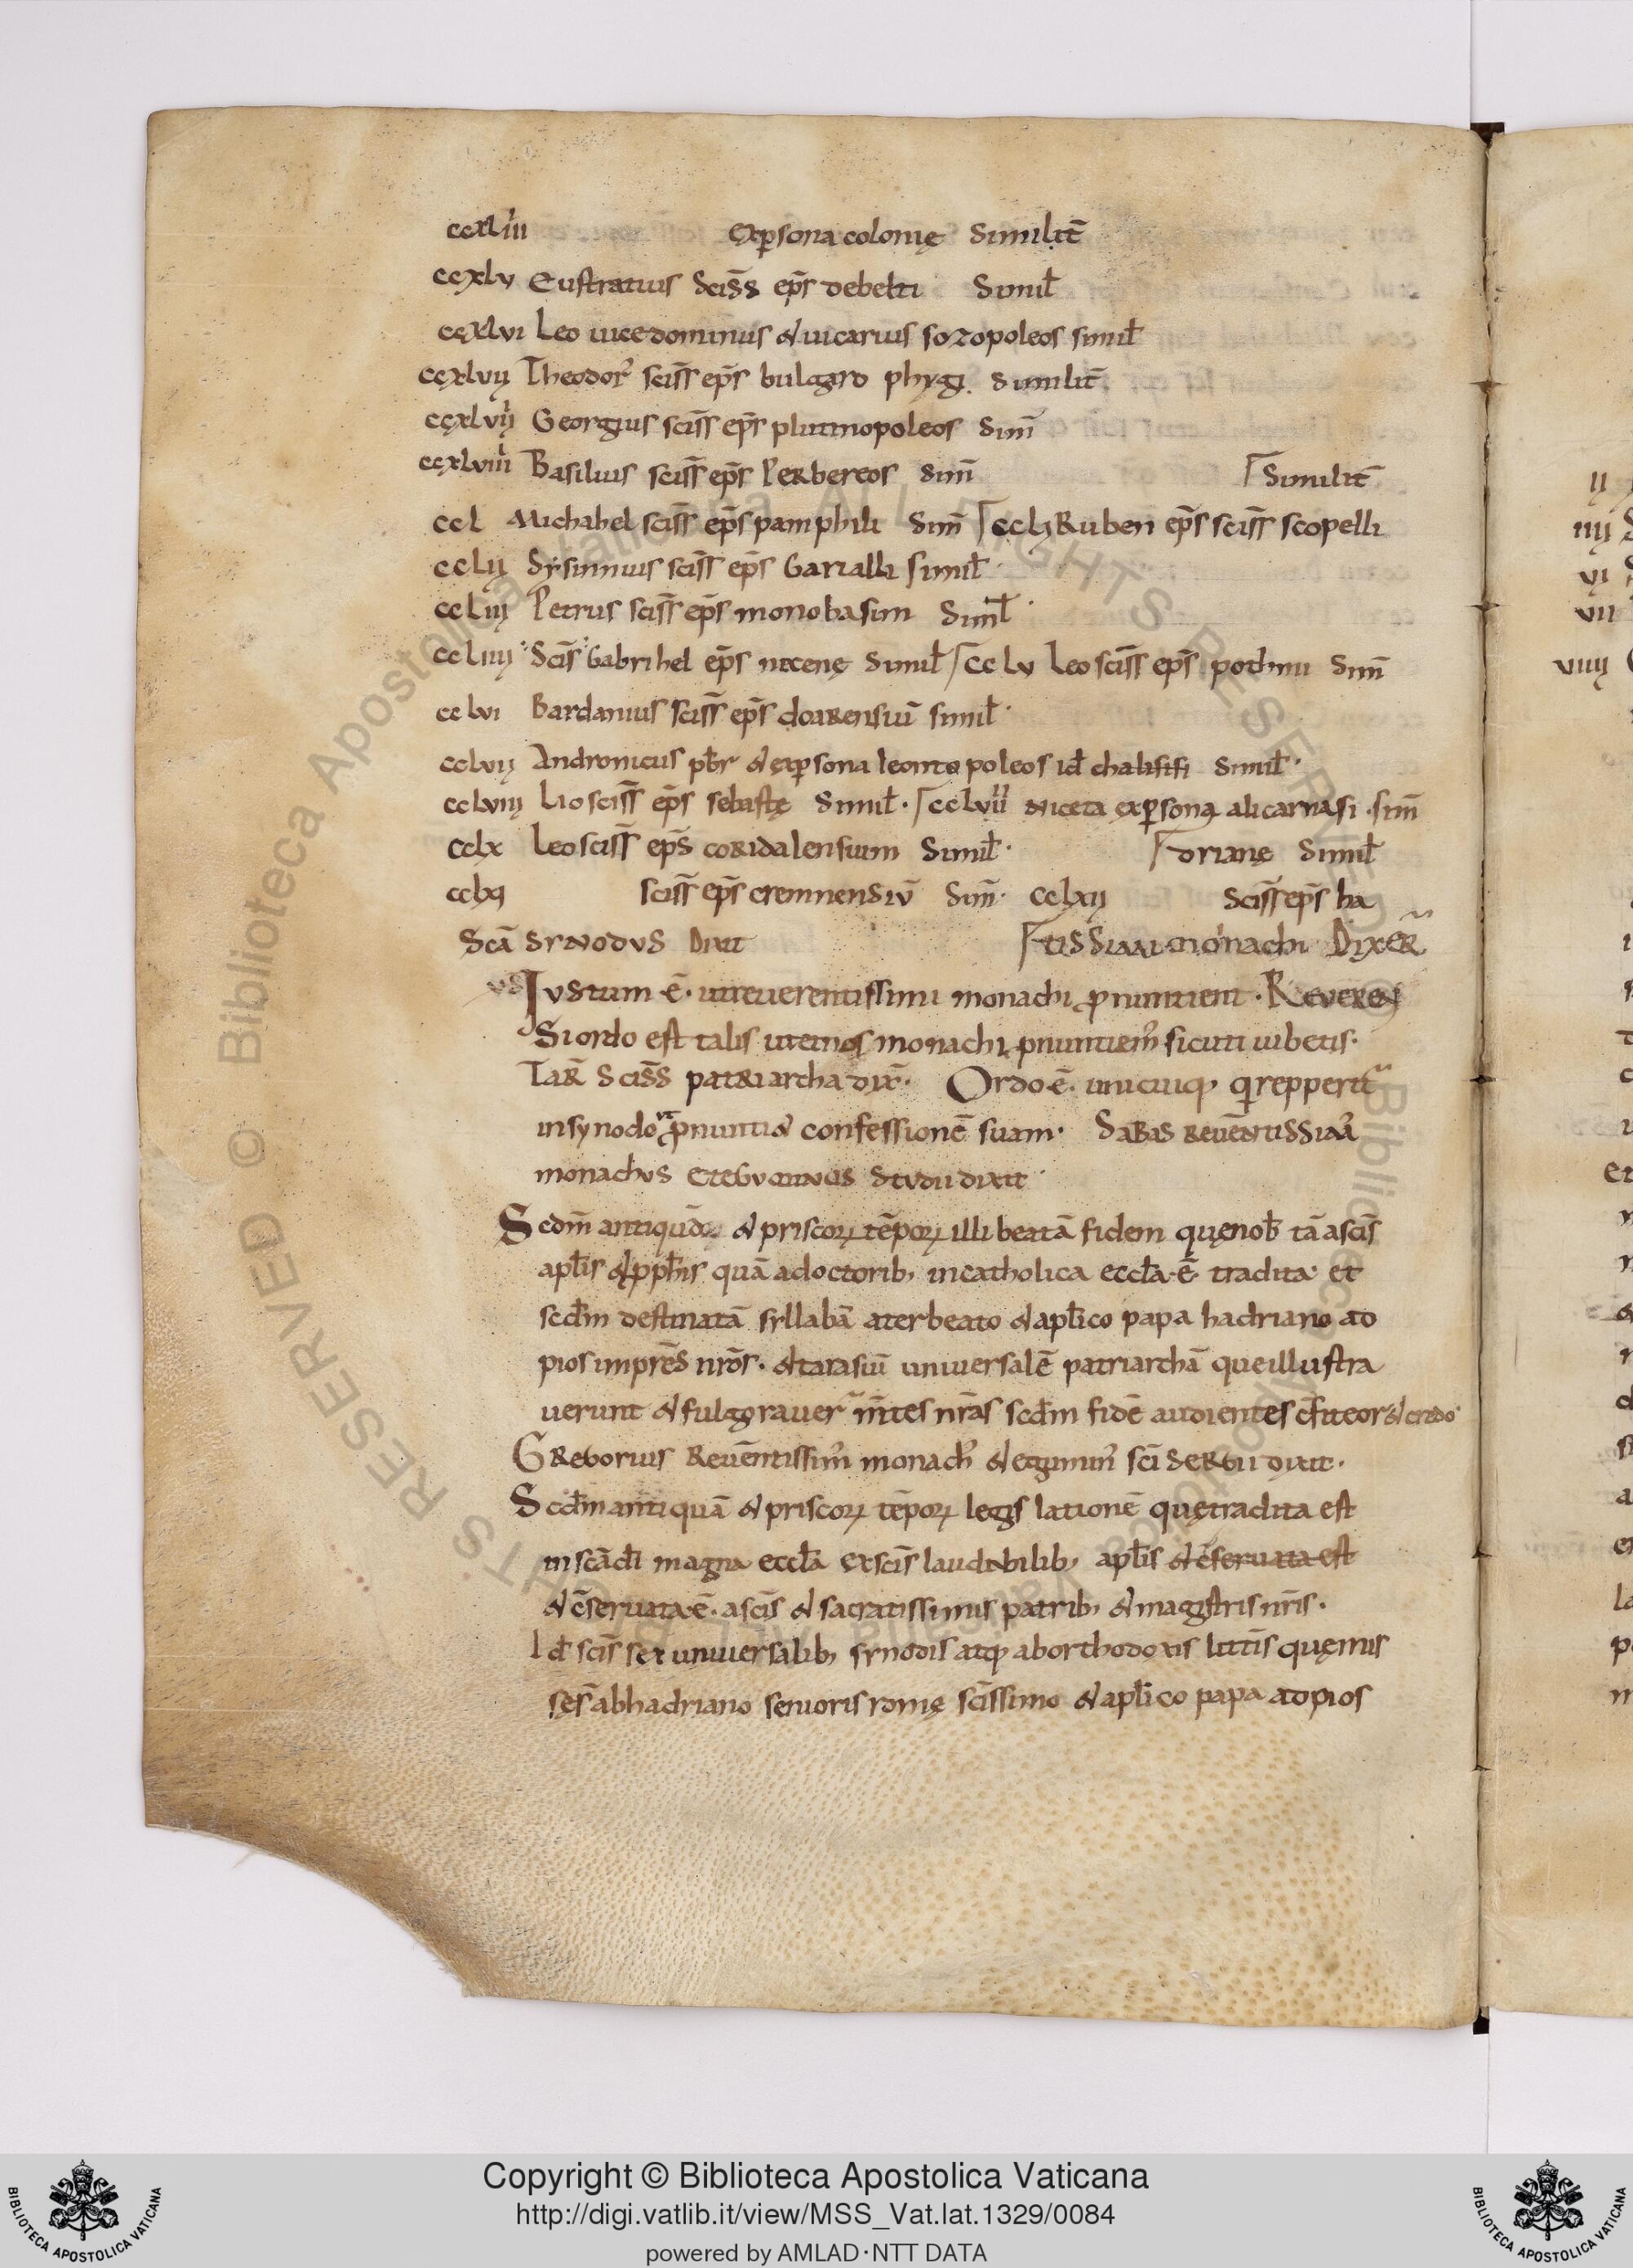 ccxliiii exp̄sona colonię Similit̄
ccxlv Eustratius Scis̄s ep̄s debelti Simil̄
ccxlvi Leo uicedominus & uicarius sozopoleos simil̄
ccxlvij Theodor' sciss̄ ep̄s bulgaro phygi. similit̄
ccxlviij Georgius sciss̄ ep̄s plutinopoleos Sim̄
ccxlviiii Basilius sciss̄ ep̄s Perbereos Sim̄ Similit̄
ccl Michahel sciss̄ ep̄s pamphili Sim̄ cclj Ruben ep̄s sciss̄ scopelli
cclij Sysinnius sciss̄ ep̄s Garialli simil̄
ccliij Petrus sciss̄ ep̄s monobasim Siml̄
ccliiij Scis̄ Gabrihel ep̄s nicenę Simil̄ cclv Leo sciss̄ ep̄s pothmi Sim̄
cclvi Bardanius sciss̄ ep̄s doarensiū simil̄
cclvij Andronicus pb̄r & exp̄sona leontopoleos id̄ chalisisi Simil̄
cclviij Lio sciss̄ ep̄s sebastę Simil̄ cclviiii Niceta exp̄sona alicarnasi sim̄
cclx Leo sciss̄ ep̄s coridalensium Simil̄ drianę Simil̄
cclxj sciss̄ ep̄s cremnensiū Sim̄ cclxij sciss̄ ep̄s ha
Scā Synodus Dixit tissimi monachi Dixer̄
Iustum ē. ut reuerentissimi monachi p̄nuntient. Reveren
Si ordo est talis ut et nos monachi p̄nuntiem' sicuti iubetis.
Tar̄ Sciss̄ patriarcha dix̄. Ordo ē. unicuiq; qi repperit
in synodo ut p̄nuntiet confessionē suam. Sabas reuēentissim'
monachus et egumenus Studii dixit
Scdm̄ antiquā & priscoꝝ tēpoꝝ illibeatā fidem quę nob̄ tā a scīs
apl̄is & pph̄is quā a doctorib; in catholica eccl̄a ē tradita et
scdm̄ destinatā syllabā a ter beato & apl̄ico papa hadriano ad
pios imprēs nrōs. & tarasiū uniuersalē patriarchā que illustra
uerunt & fulgorauer̄ m̄tes nr̄as scdm̄ fidē audientes cf̄iteor & credo
Gregorius Reuēntissim' monach' & egumin' scī Sergii dixit.
Scdm̄ antiquā & priscoꝝ tēpoꝝ legis lationē quę tradita est
in scā dī magna eccl̄a ex scīs laudabilib; apl̄is & c̄seruata est
& c̄seruata ē. a scīs & sacratissimis patrib; & magistris nr̄is.
Id̄ scīs sex uniuersalib; synodis atq; ab orthodoxis littīs quę mis
sęs̄ ab hadriano senioris romę scīssimo & apl̄ico papa ad pios
Copyright © Biblioteca Apostolica Vaticana
http://digi.vatlib.it/view/MSS_Vat.lat.1329/0084
powered by AMLAD·NTT DATA